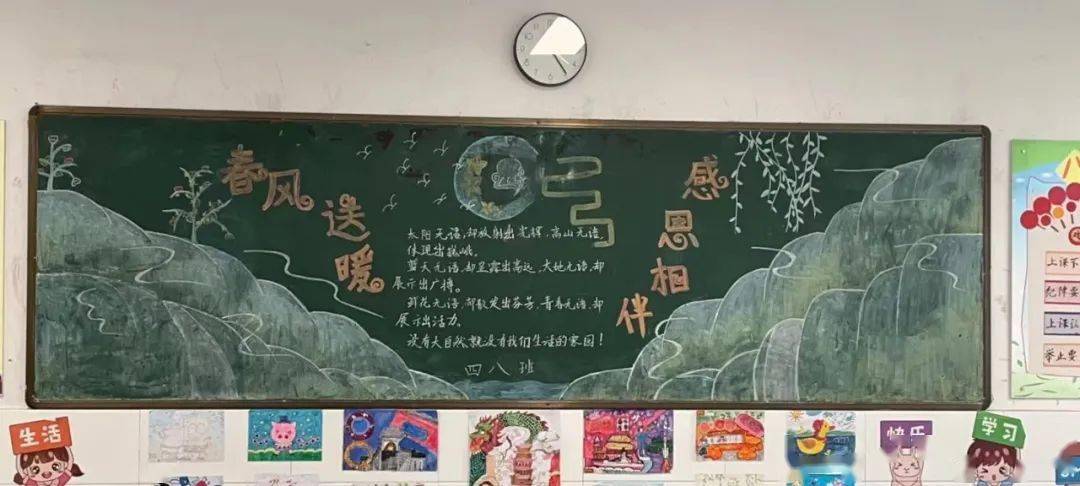 春风
送暖
感恩
相伴
太阳无语,却放射出光辉,高山无语,
体现出巍峨。
蓝天无语,却显露出高远,大地无语,却
展示出广博。
鲜花无语,却散发出芬芳,青春无语,却
展示出活力。
没有大自然,就没有我们生活的家园!
四八班
生活
快乐
学习
上课不
纪律要
上课认
举止要